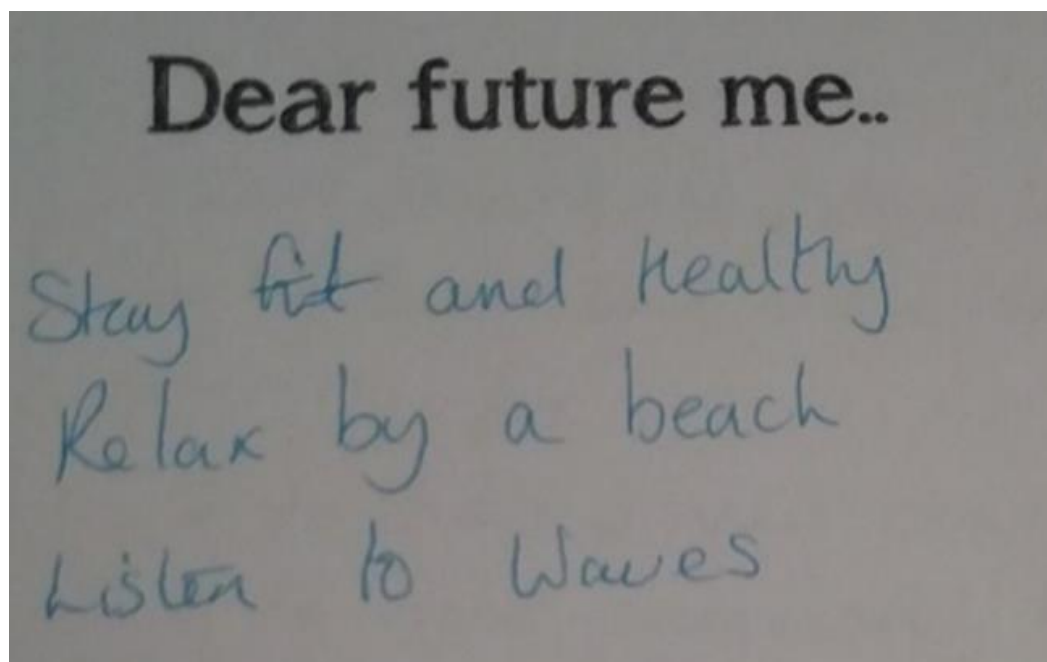 Dear future me..
Stay fit and Healthy
Relax by a beach
Listen to Waves